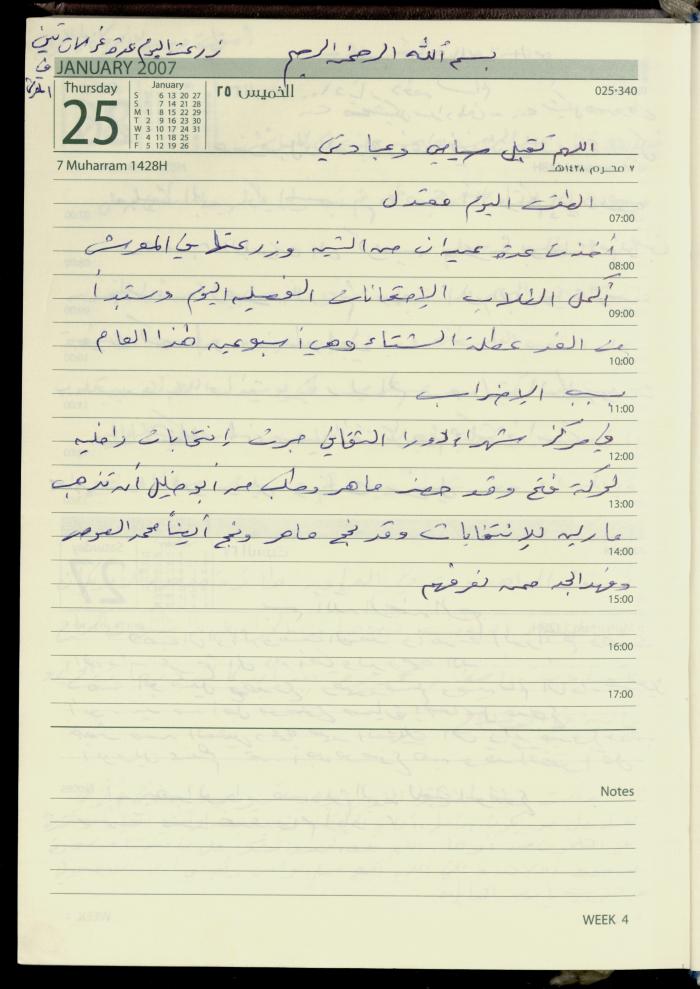 زرعت اليوم عدة غرسات تين
في
بسم الله الرحمن الرحيم
JANUARY 2007
Thursday
25
January
S 6 13 20 27
S 7 14 21 28
M 1 8 15 22 29
T 2 9 16 23 30
W 3 10 17 24 31
T 4 11 18 25
F 5 12 19 26
الخميس ٢٥
025-340
اللهم تقبل صيامي وعبادتي
7 Muharram 1428H
٧ محرم ١٤٢٨هـ
الطقس اليوم معتدل
07:00
أخذت عدة عيدان من التين وزرعتها في
08:00
أكمل الطلاب الإمتحانات الفصليه اليوم وستبدأ
09:00
من الغد عطلة الشتاء وهي أسبوعين هذا العام
10:00
بسبب الإضراب
11:00
في مركز شهداء دورا الثقافي جرت إنتخابات داخليه
12:00
لحركة فتح وقد حضر ماهر وطلب من أبو خليل أن تذهب
13:00
للإنتخابات وقد نجح ماهر ونجح أيضاً محمد
14:00
وفهد ممن نعرفهم
15:00
16:00
17:00
Notes
WEEK 4